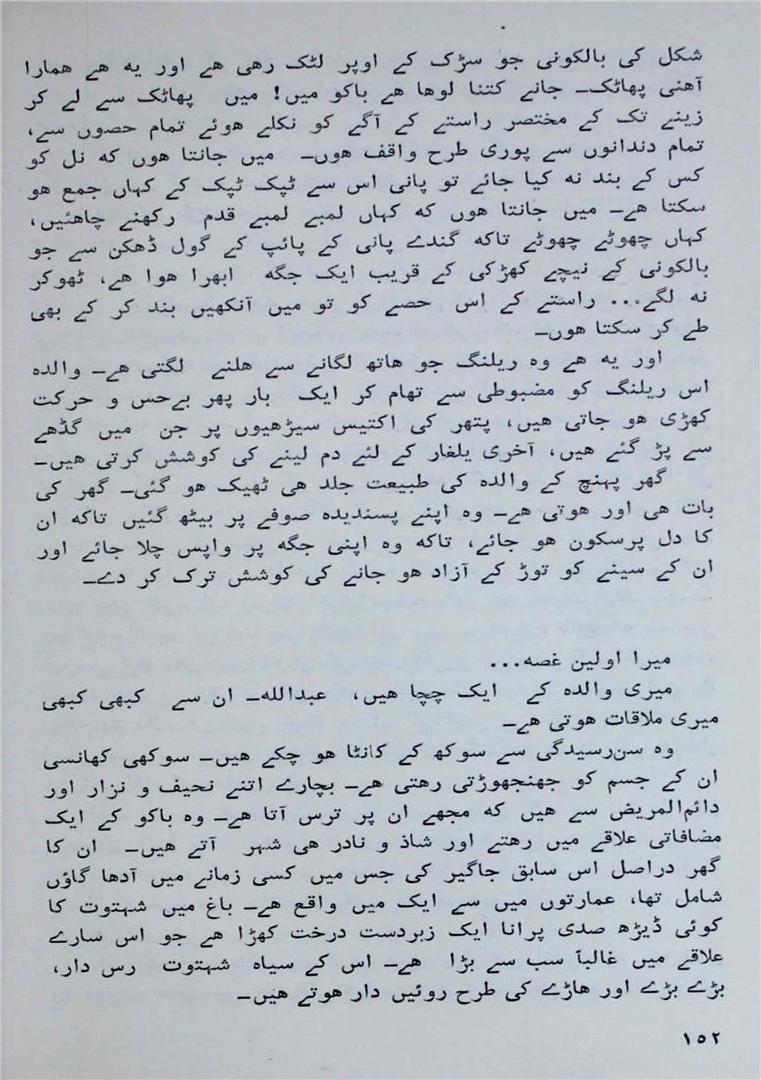 شکل کی بالکونی جو سڑک کے اوپر لٹک رھی ھے اور یه ھے ھمارا
آھنی پھاٹک۔ جانے کتنا لوھا ھے باکو میں! میں پھاٹک سے لے کر
زینے تک کے مختصر راستے کے آگے کو نکلے ھوئے تمام حصوں سے،
تمام دندانوں سے پوری طرح واقف ھوں۔ میں جانتا ھوں که نل کو
کس کے بند نه کیا جائے تو پانی اس سے ٹپک ٹپک کے کہاں جمع ھو
سکتا ھے۔ میں جانتا ھوں که کہاں لمبے لمبے قدم رکھنے چاھئیں،
کہاں چھوٹے چھوٹے تاکه گندے پانی کے پائپ کے گول ڈھکن سے جو
بالکونی کے نیچے کھڑکی کے قریب ایک جگه ابھرا ھوا ھے، ٹھوکر
نه لگے... راستے کے اس حصے کو تو میں آنکھیں بند کر کے بھی
طے کر سکتا ھوں۔
اور یه ھے وہ ریلنگ جو ھاتھ لگانے سے ھلنے لگتی ھے۔ والدہ
اس ریلنگ کو مضبوطی سے تھام کر ایک بار پھر بےحس و حرکت
کھڑی ھو جاتی ھیں، پتھر کی اکتیس سیڑھیوں پر جن میں گڈھے
سے پڑ گئے ھیں، آخری یلغار کے لئے دم لینے کی کوشش کرتی ھیں۔
گھر پہنچ کے والدہ کی طبیعت جلد ھی ٹھیک ھو گئی۔ گھر کی
بات ھی اور ھوتی ھے۔ وہ اپنے پسندیدہ صوفے پر بیٹھ گئیں تاکه ان
کا دل پرسکون ھو جائے، تاکه وہ اپنی جگه پر واپس چلا جائے اور
ان کے سینے کو توڑ کے آزاد ھو جانے کی کوشش ترک کر دے۔
میرا اولین غصه...
میری والدہ کے ایک چچا ھیں، عبدالله۔ ان سے کبھی کبھی
میری ملاقات ھوتی ھے۔
وہ سن‌رسیدگی سے سوکھ کے کانٹا ھو چکے ھیں۔ سوکھی کھانسی
ان کے جسم کو جھنجھوڑتی رھتی ھے۔ بچارے اتنے نحیف و نزار اور
دائم‌المریض سے ھیں که مجھے ان پر ترس آتا ھے۔ وہ باکو کے ایک
مضافاتی علاقے میں رھتے اور شاذ و نادر ھی شہر آتے ھیں۔ ان کا
گھر دراصل اس سابق جاگیر کی جس میں کسی زمانے میں آدھا گاؤں
شامل تھا، عمارتوں میں سے ایک میں واقع ھے۔ باغ میں شہتوت کا
کوئی ڈیڑھ صدی پرانا ایک زبردست درخت کھڑا ھے جو اس سارے
علاقے میں غالباً سب سے بڑا ھے۔ اس کے سیاہ شہتوت رس دار،
بڑے بڑے اور ھاڑے کی طرح روئیں دار ھوتے ھیں۔
۱۵۲